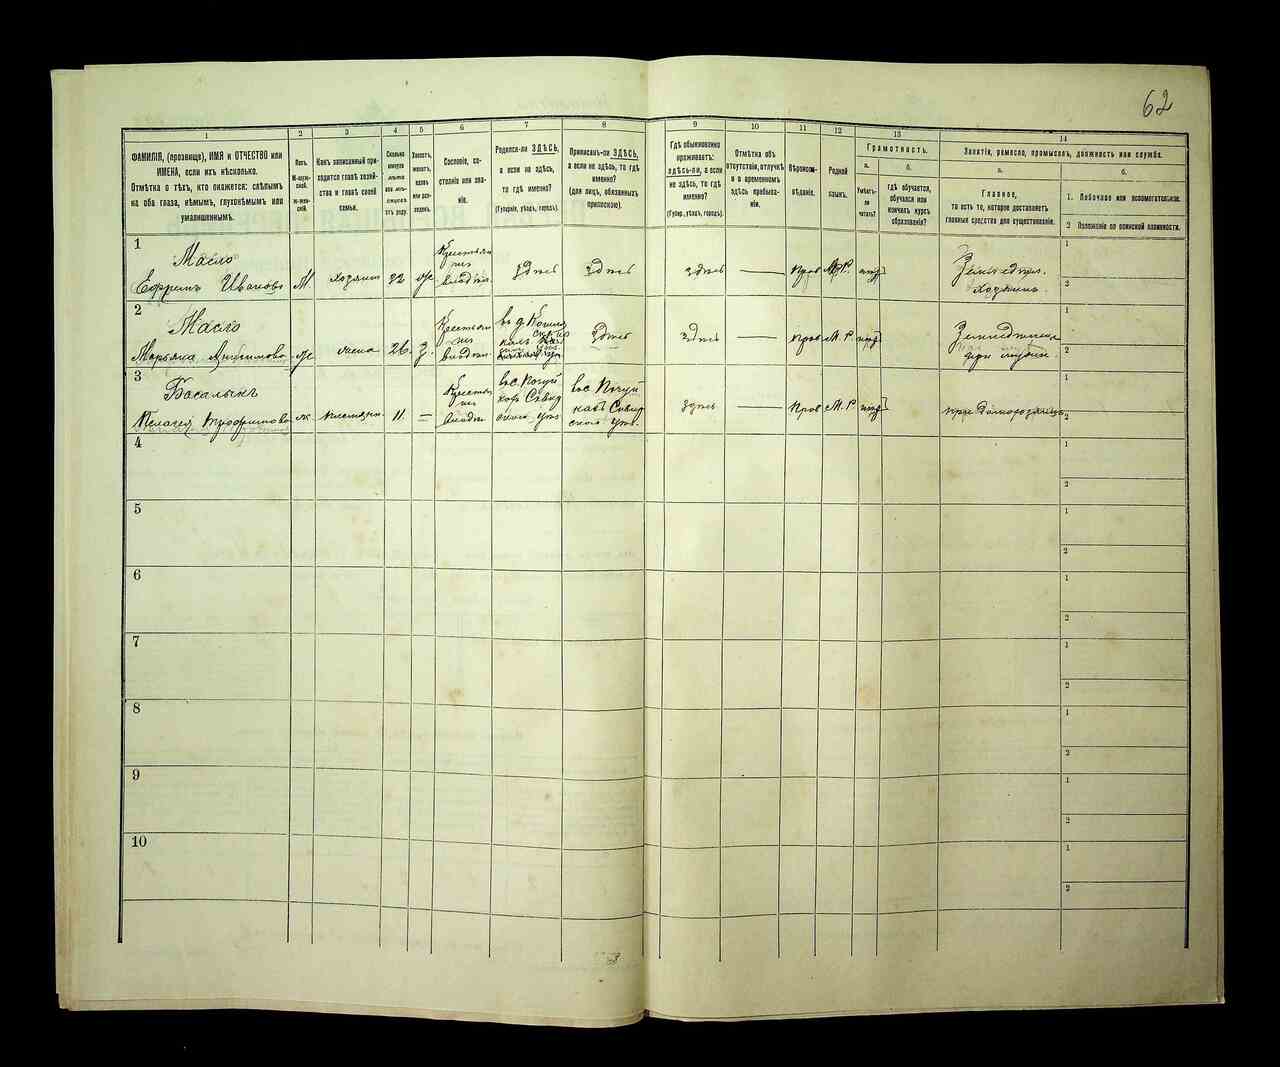 62
1
2
3
4
5
6
7
8
9
10
11
12
13
14
ФАМИЛІЯ, (прозвище), ИМЯ и ОТЧЕСТВО или
ИМЕНА, если ихъ нѣсколько.
Отмѣтка о тѣхъ, кто окажется: слѣпымъ
на оба глаза, нѣмымъ, глухонѣмымъ или
умалишеннымъ.
Полъ.
М-муж-
ской.
ж-жен-
скій.
Какъ записанный при-
ходится главѣ хозяй-
ства и главѣ своей
семьи.
Сколько
минуло
лѣтъ
или мѣ-
сяцевъ
отъ роду.
Холостъ,
женатъ,
вдовъ
или раз-
веденъ.
Сословіе, со-
стояніе или зва-
ніе.
Родился-ли ЗДѢСЬ,
а если не здѣсь,
то гдѣ именно?
(Губернія, уѣздъ, городъ).
Приписанъ-ли ЗДѢСЬ,
а если не здѣсь, то гдѣ
именно?
(для лицъ, обязанныхъ
припискою).
Гдѣ обыкновенно
проживаетъ:
здѣсь-ли, а если
не здѣсь, то гдѣ
именно?
(Губер., уѣздъ, городъ).
Отмѣтка объ
отсутствіи, отлучкѣ
и о временномъ
здѣсь пребыва-
ніи.
Вѣроиспо-
вѣданіе.
Родной
языкъ.
Грамотность.
а.
Умѣетъ-
ли
читать?
б.
Гдѣ обучается,
обучался или
кончилъ курсъ
образованія?
Занятіе, ремесло, промыселъ, должность или служба.
а.
Главное,
то есть то, которое доставляетъ
главныя средства для существованія.
б.
1. Побочное или вспомогательное.
2 Положеніе по воинской повинности.
1
Масло
Ефремъ Ивановъ М. хозяинъ 32 ж. Крестьян здѣсь здѣсь здѣсь — Прав М.Р. нѣтъ Земледѣл.
хозяинъ
1
2
2
Масло
Марьяна ж жена 26. з. Крестьян здѣсь здѣсь — Прав М.Р. нѣтъ
при мужѣ
1
2
3
Басалыкъ
Пелагея Трофимова ж 11. — Крестьян въ с. въ с. здѣсь — Прав М.Р. нѣтъ
1
2
4
1
2
5
1
2
6
1
2
7
1
2
8
1
2
9
1
2
10
1
2